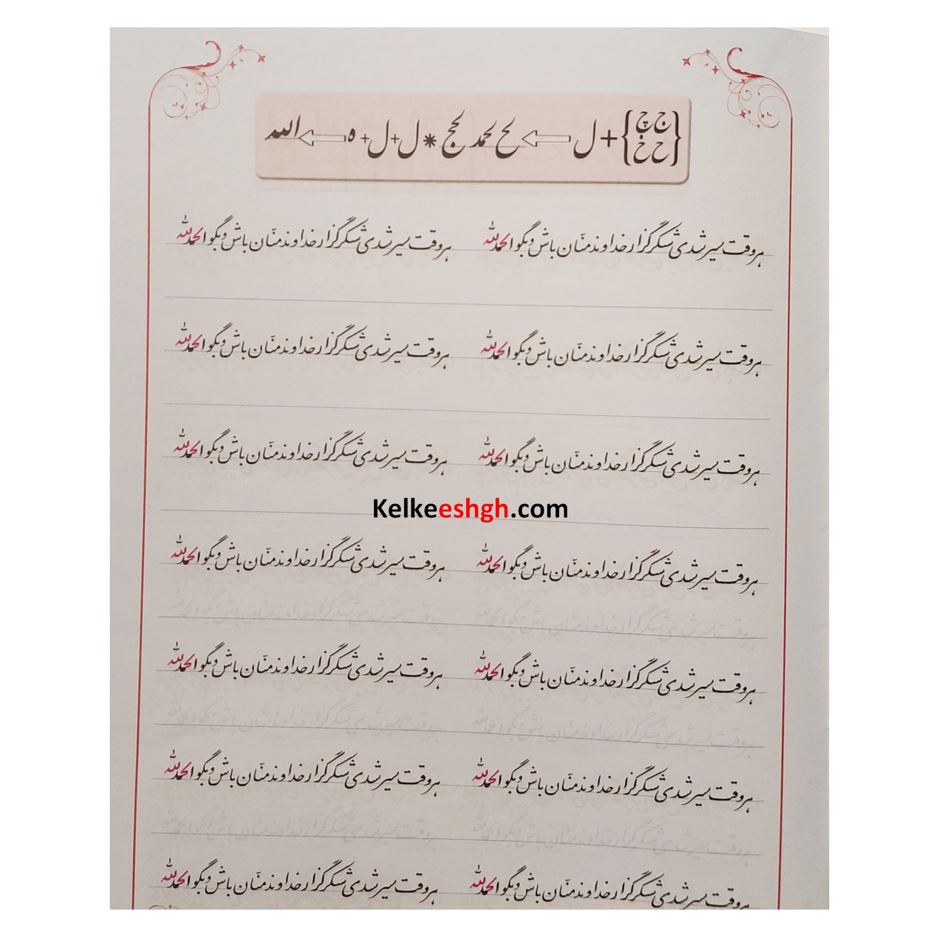 {ج چ ح خ} + ل ⇐ لح محمد لحج * ل + ل + ه ⇐ الله
هر وقت سیر شدی شکرگزار خداوند منّان باش و بگو الحمدلله هر وقت سیر شدی شکرگزار خداوند منّان باش و بگو الحمدلله
هر وقت سیر شدی شکرگزار خداوند منّان باش و بگو الحمدلله هر وقت سیر شدی شکرگزار خداوند منّان باش و بگو الحمدلله
هر وقت سیر شدی شکرگزار خداوند منّان باش و بگو الحمدلله هر وقت سیر شدی شکرگزار خداوند منّان باش و بگو الحمدلله
Kelkeeshgh.com
هر وقت سیر شدی شکرگزار خداوند منّان باش و بگو الحمدلله هر وقت سیر شدی شکرگزار خداوند منّان باش و بگو الحمدلله
هر وقت سیر شدی شکرگزار خداوند منّان باش و بگو الحمدلله هر وقت سیر شدی شکرگزار خداوند منّان باش و بگو الحمدلله
هر وقت سیر شدی شکرگزار خداوند منّان باش و بگو الحمدلله هر وقت سیر شدی شکرگزار خداوند منّان باش و بگو الحمدلله
هر وقت سیر شدی شکرگزار خداوند منّان باش و بگو الحمدلله هر وقت سیر شدی شکرگزار خداوند منّان باش و بگو الحمدلله